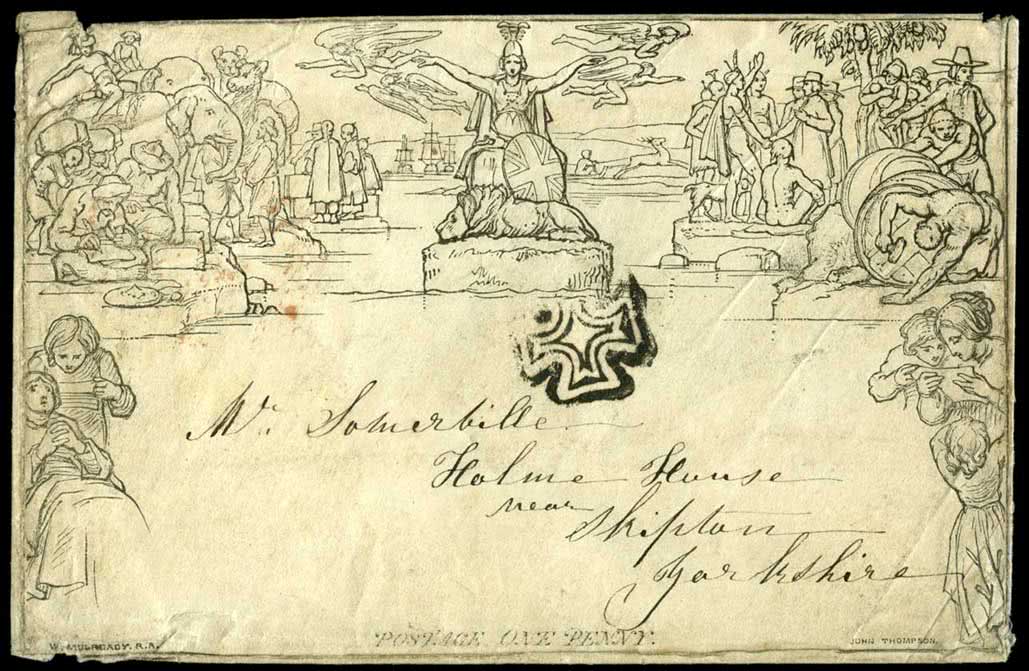 Mr. Somerville
Holme House
near
Skipton
Yorkshire
POSTAGE ONE PENNY.
W. MULREADY. R.A.
JOHN THOMPSON.